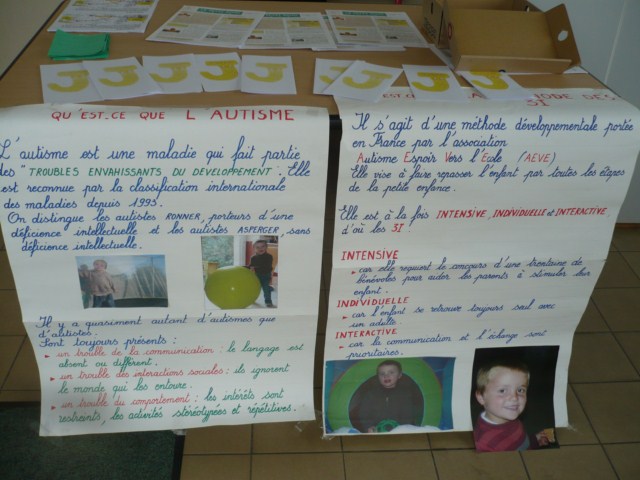 J J J J J J J J J
QU'EST-CE QUE L'AUTISME
L'autisme est une maladie qui fait partie
des "TROUBLES ENVAHISSANTS DU DEVELOPPEMENT". Elle
est reconnue par la classification internationale
des maladies depuis 1995.
On distingue les autistes KONNER, porteurs d'une
déficience intellectuelle et les autistes ASPERGER, sans
déficience intellectuelle.
Il y a quasiment autant d'autismes que
d'autistes.
Sont toujours présents :
► un trouble de la communication : le langage est
absent ou différent.
► un trouble des interactions sociales : ils ignorent
le monde qui les entoure.
► un trouble du comportement : les intérêts sont
restreints, les activités stéréotypées et répétitives.
3I
Il s'agit d'une méthode développementale portée
en France par l'association
Autisme Espoir Vers l'Ecole (AEVE)
Elle vise à faire repasser l'enfant par toutes les étapes
de la petite enfance.
Elle est à la fois INTENSIVE, INDIVIDUELLE et INTERACTIVE,
d'où les 3I
INTENSIVE
► car elle requiert le concours d'une trentaine de
bénévoles pour aider les parents à stimuler leur
enfant.
INDIVIDUELLE
► car l'enfant se retrouve toujours seul avec
un adulte.
INTERACTIVE
► car la communication et l'échange sont
prioritaires.